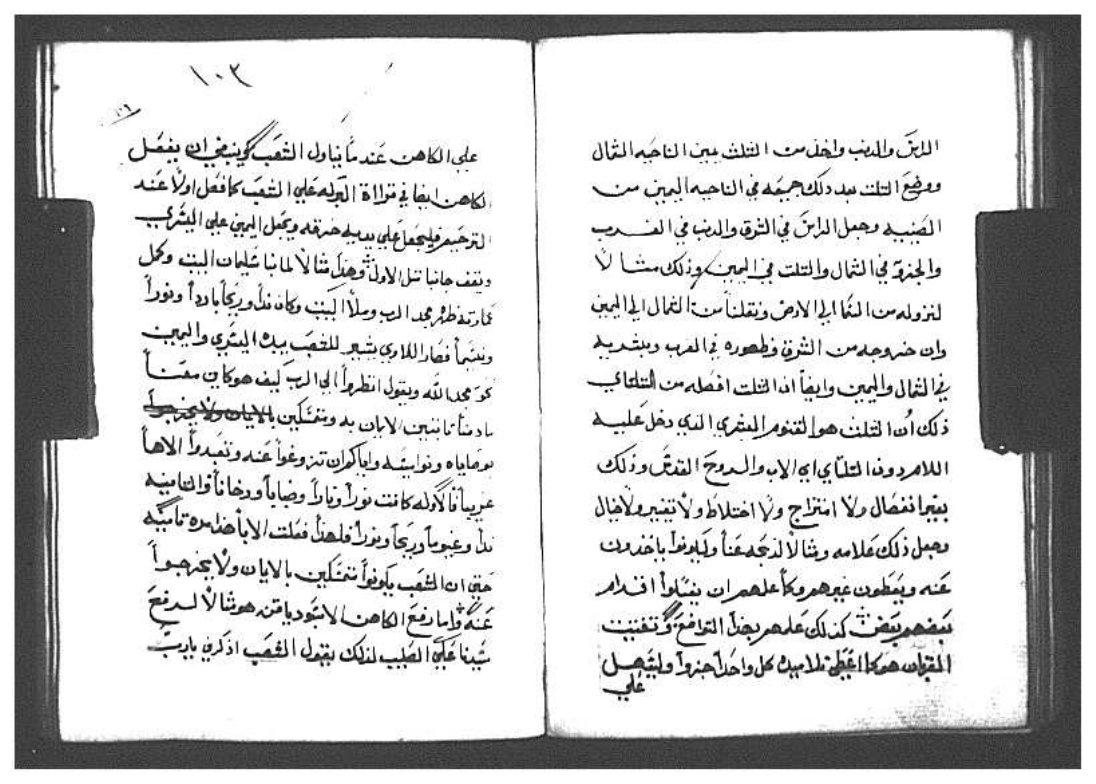 الراس والدنب واخذ من الثلث بين الناحيه الشمال
ووضع الثلث بعد دلك جميعه في الناحيه اليمين من
الصينيه وجعل الراس في الشرق والدنب في الغرب
والجزو في الشمال والثلث في اليمين وذلك مثالاً
لنزوله من السما الي الارض ونقلنا من الشمال الي اليمين
وان خروجه من الشرق وظهوره في الغرب وبشريه
في الشمال واليمين وايضاً ان الثلث افصله من الثلثاي
ذلك أن الثلث هو القنوم البشري الذي دخل عليه
اللام دون الثلثاي اي الاب والروح القدس وذلك
بغير انفصال ولا امتزاج ولا اختلاط ولا تغيير ولا خيال
وجعل ذلك علامه ومثالاً لذبحه عنا وليكونوا ياخذون
عنه ويعطون غيرهم وكما علمهم ان يغسلوا اقدام
بعضهم بعض كذلك علمهم بهذا التواضع وتفتيت
القربان هو كما اعطي تلاميده كل واحداً جزوا وليسهل
علي
١٠٣
١٠٦
علي الكاهن عند ما يناول الشعب وينبغي ان يفعل
الكاهن ايضا في قراة البركه علي الشعب كما فعل اولا عند
الترحيم فليجعل علي يديه خرقه ويجعل اليمين علي اليسري
ويقف جانبا مثل الاول وهذا مثالا لما بنا سليمان البيت وكمل
عمارته ظهر مجد الرب وملا البيت وكان ندا وريحاً بارداً ونوراً
وغيماً فصار اللاوي يشير للشعب بيده اليسري واليمين
نحو مجد الله ويقول انظروا الي الرب كيف هو كاين معنا
يا دمنا ثابتين الايمان به ومتمسكين
بوصاياه ونواميسه واياكم ان تزوغوا عنه وتعبدوا الاها
غريباً فالاوله كانت نوراً وناراً وضباباً ودخاناً والثانيه
ندا وغيوماً وريحاً ونوراً فلهذا فعلت الابا هذا مره ثانيه
حتي ان الشعب يكونوا متمسكين بالايمان ولا يخرجوا
عنه واما رفع الكاهن الاسبوديقن هو مثالا لرفع
سيدنا علي الصليب لذلك يقول الشعب اذكرني يارب